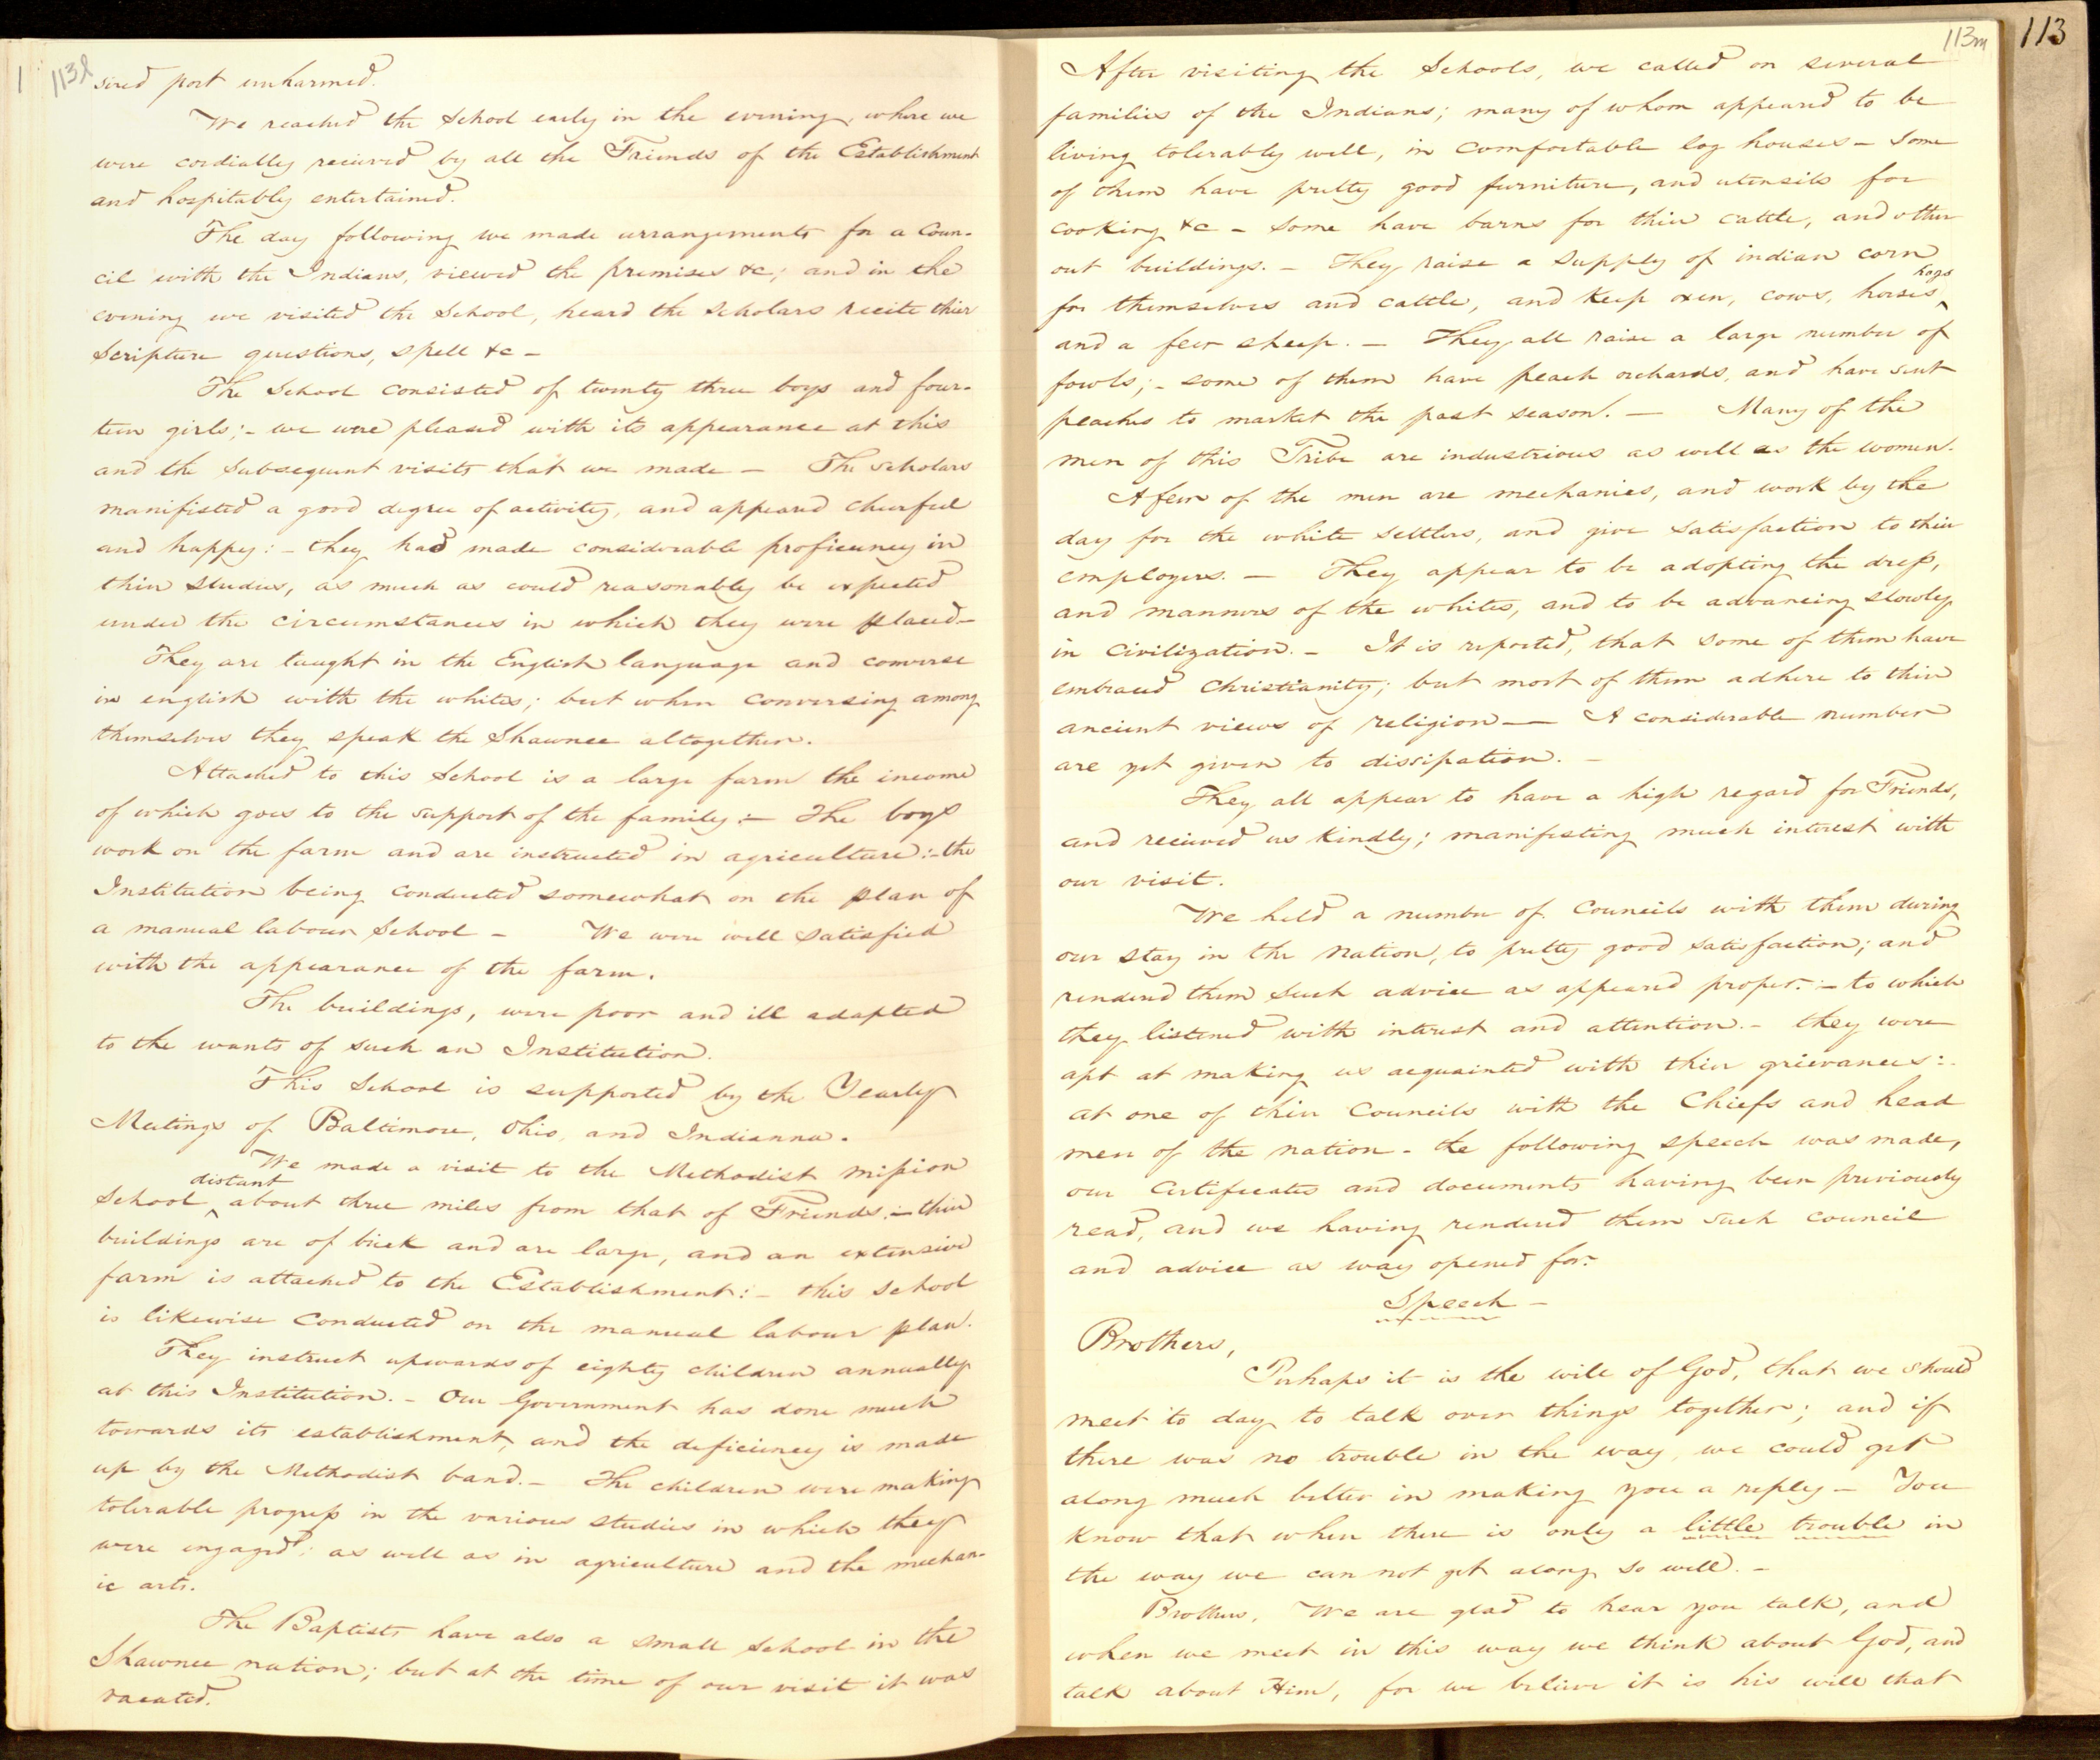 113l
sired port unharmed.
We reached the School early in the evening, where we
were cordially received by all the Friends of the Establishment
and hospitably entertained.
The day following we made arrangements for a Coun-
cil with the Indians, viewed the premises &c; and in the
evening we visited the School, heard the Scholars recite their
Scripture questions, spell &c –
The School consisted of twenty three boys and four-
teen girls; – we were pleased with its appearance at this
and the subsequent visits that we made – The scholars
manifested a good degree of activity, and appeared cheerful
and happy: – they had made considerable proficiency in
their studies, as much as could reasonably be expected
under the circumstances in which they were placed –
They are taught in the English language and converse
in english with the whites; but when conversing among
themselves they speak the Shawnee altogether.
Attached to this School is a large farm the income
of which goes to the support of the family: – The boys
work on the farm and are instructed in agriculture: – the
Institution being conducted somewhat on the plan of
a manual labour School – We were well satisfied
with the appearance of the farm.
The buildings, were poor and ill adapted
to the wants of such an Institution.
This School is supported by the Yearly
Meetings of Baltimore, Ohio, and Indianna.
We made a visit to the Methodist mission
School, distant about three miles from that of Friends: – their
buildings are of brick and are large, and an extensive
farm is attached to the Establishment: – this School
is likewise conducted on the manual labour plan.
They instruct upwards of eighty children annually
at this Institution. – Our Government has done much
towards its establishment, and the deficiency is made
up by the Methodist band. – The children were making
tolerable progress in the various studies in which they
were engaged; as well as in agriculture and the mechan-
ic arts.
The Baptists have also a small School in the
Shawnee nation; but at the time of our visit it was
vacated.
113m
113
After visiting the Schools, we called on several
families of the Indians; many of whom appeared to be
living tolerably well, in comfortable log houses – Some
of them have pretty good furniture, and utensils for
cooking &c – Some have barns for their cattle, and other
out buildings. – They raise a supply of indian corn
for themselves and cattle, and keep oxen, cows, horses, hogs
and a few sheep. – They all raise a large number of
fowls; – some of them have peach orchards, and have sent
peaches to market the past season. – Many of the
men of this Tribe are industrious as well as the women.
A few of the men are mechanics, and work by the
day for the white settlers, and give satisfaction to their
employers. – They appear to be adopting the dress,
and manners of the whites, and to be advancing slowly
in civilization. – It is reported, that some of them have
embraced Christianity; but most of them adhere to their
ancient views of religion – A considerable number
are yet given to dissipation. –
They all appear to have a high regard for Friends,
and recieved us kindly; manifesting much interest with
our visit.
We held a number of Councils with them during
our stay in the nation, to pretty good satisfaction; and
rendered them such advice as appeared proper: – to which
they listened with interest and attention. – they were
apt at making us acquainted with their grievances: –
at one of their Councils with the Chiefs and head
men of the nation – the following speech was made,
our certificates and documents having been previously
read, and we having rendered them such council
and advice as way opened for.
Speech –
Brothers,
Perhaps it is the will of God, that we should
meet to day to talk over things together; and if
there was no trouble in the way, we could get
along much better in making you a reply – You
know that when there is only a little trouble in
the way we can not get along so well. –
Brothers, We are glad to hear you talk, and
when we meet in this way we think about God, and
talk about Him, for we believe it is his will that